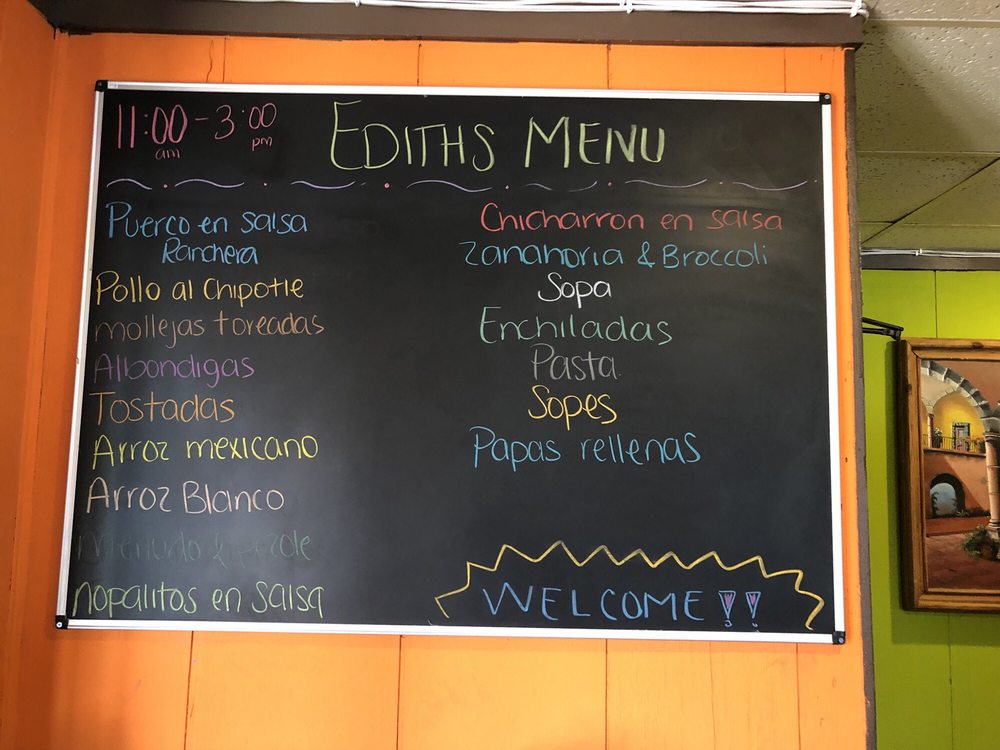 11:00 am - 3:00 pm
EDITHS MENU
Puerco en salsa
Ranchera
Pollo al Chipotle
mollejas toreadas
Albondigas
Tostadas
Arroz mexicano
Arroz Blanco
Menudo & pozole
nopalitos en salsa
Chicharron en salsa
Zanahoria & Broccoli
Sopa
Enchiladas
Pasta
Sopes
Papas rellenas
WELCOME !!